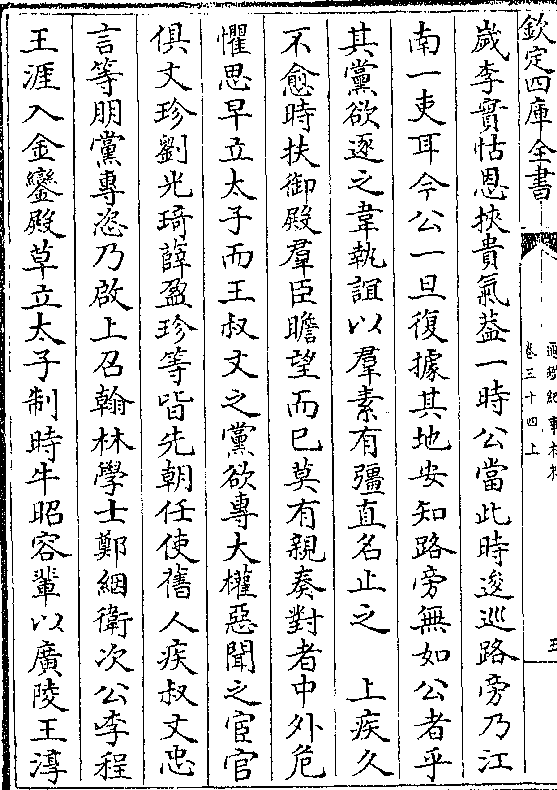 欽定四庫全書
通鑑紀事本末
卷三十四上
五
歲李實怙恩挾貴氣葢一時公當此時逡巡路旁乃江
南一吏耳今公一旦復據其地安知路旁無如公者乎
其黨欲逐之韋執誼以羣素有彊直名止之　上疾久
不愈時扶御殿羣臣瞻望而已莫有親奏對者中外危
懼思早立太子而王叔文之黨欲專大權惡聞之宦官
俱文珍劉光琦薛盈珍等皆先朝任使舊人疾叔文忠
言等朋黨專恣乃啟上召翰林學士鄭絪衛次公李程
王涯入金鑾殿草立太子制時牛昭容輩以廣陵王淳